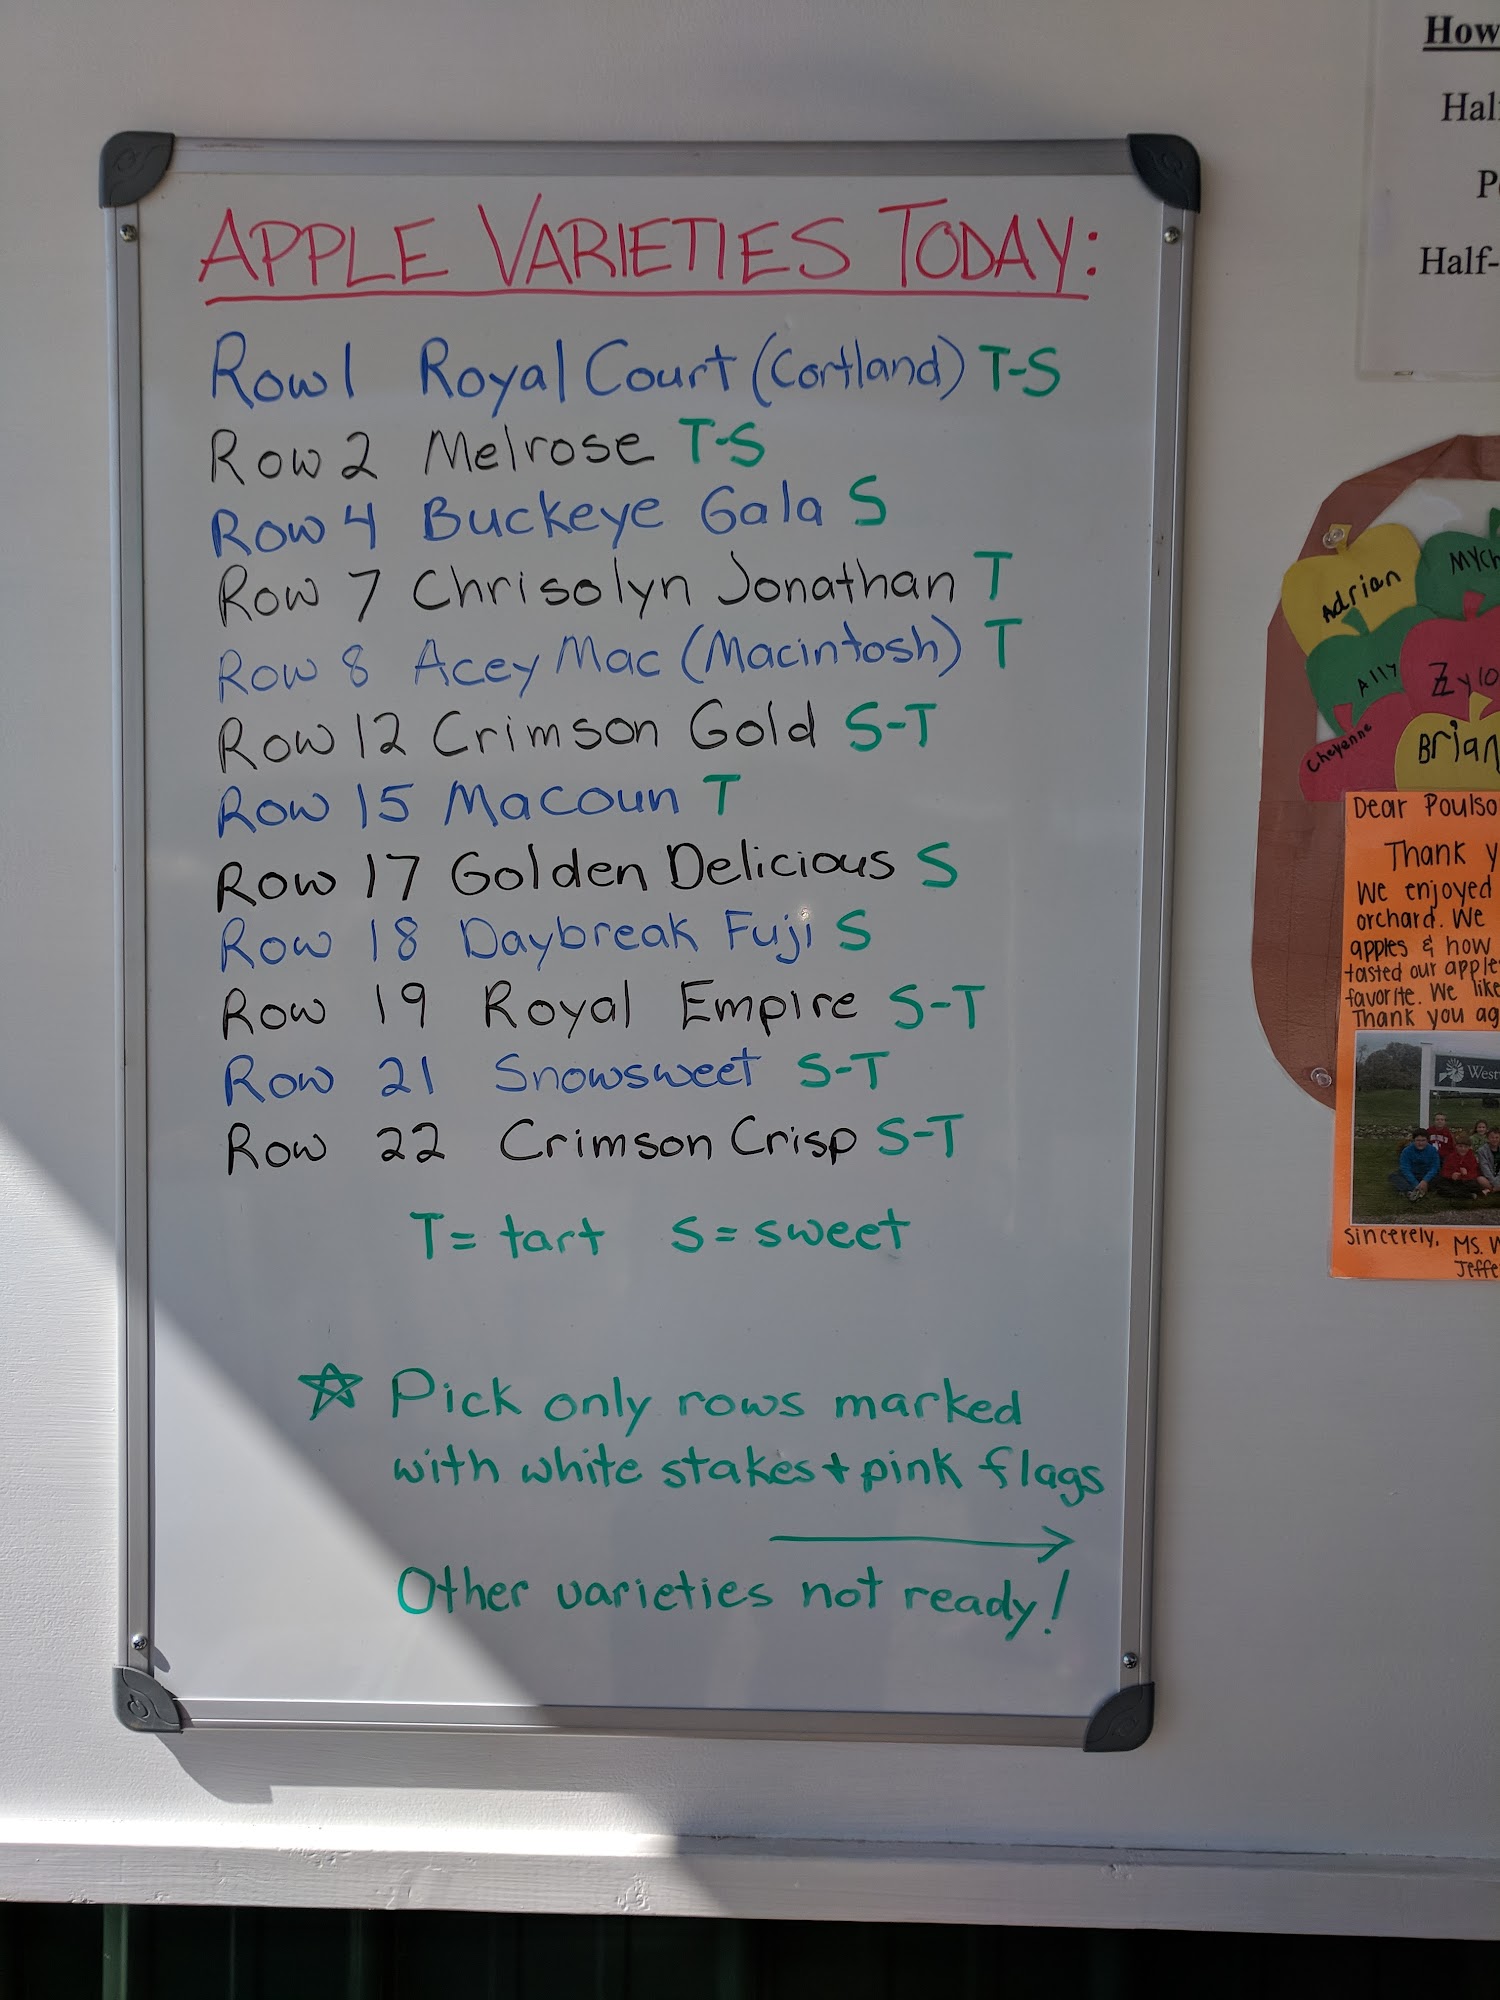 APPLE VARIETIES TODAY:
Row 1 Royal Court (Cortland) T-S
Row 2 Melrose T-S
Row 4 Buckeye Gala S
Row 7 Chrisolyn Jonathan T
Row 8 Acey Mac (Macintosh) T
Row 12 Crimson Gold S-T
Row 15 Macoun T
Row 17 Golden Delicious S
Row 18 Daybreak Fuji S
Row 19 Royal Empire S-T
Row 21 Snowsweet S-T
Row 22 Crimson Crisp S-T
T= tart S= sweet
☆ Pick only rows marked
with white stakes + pink flags
→
Other varieties not ready!
How
Half-
Adrian
Ally
Zylo
Cheyenne
Brian
Dear Poulso
Thank y
We enjoyed
orchard. We
apples & how
tasted our apple
favorite. We like
Thank you ag
West
Sincerely, Ms. W
Jeffe